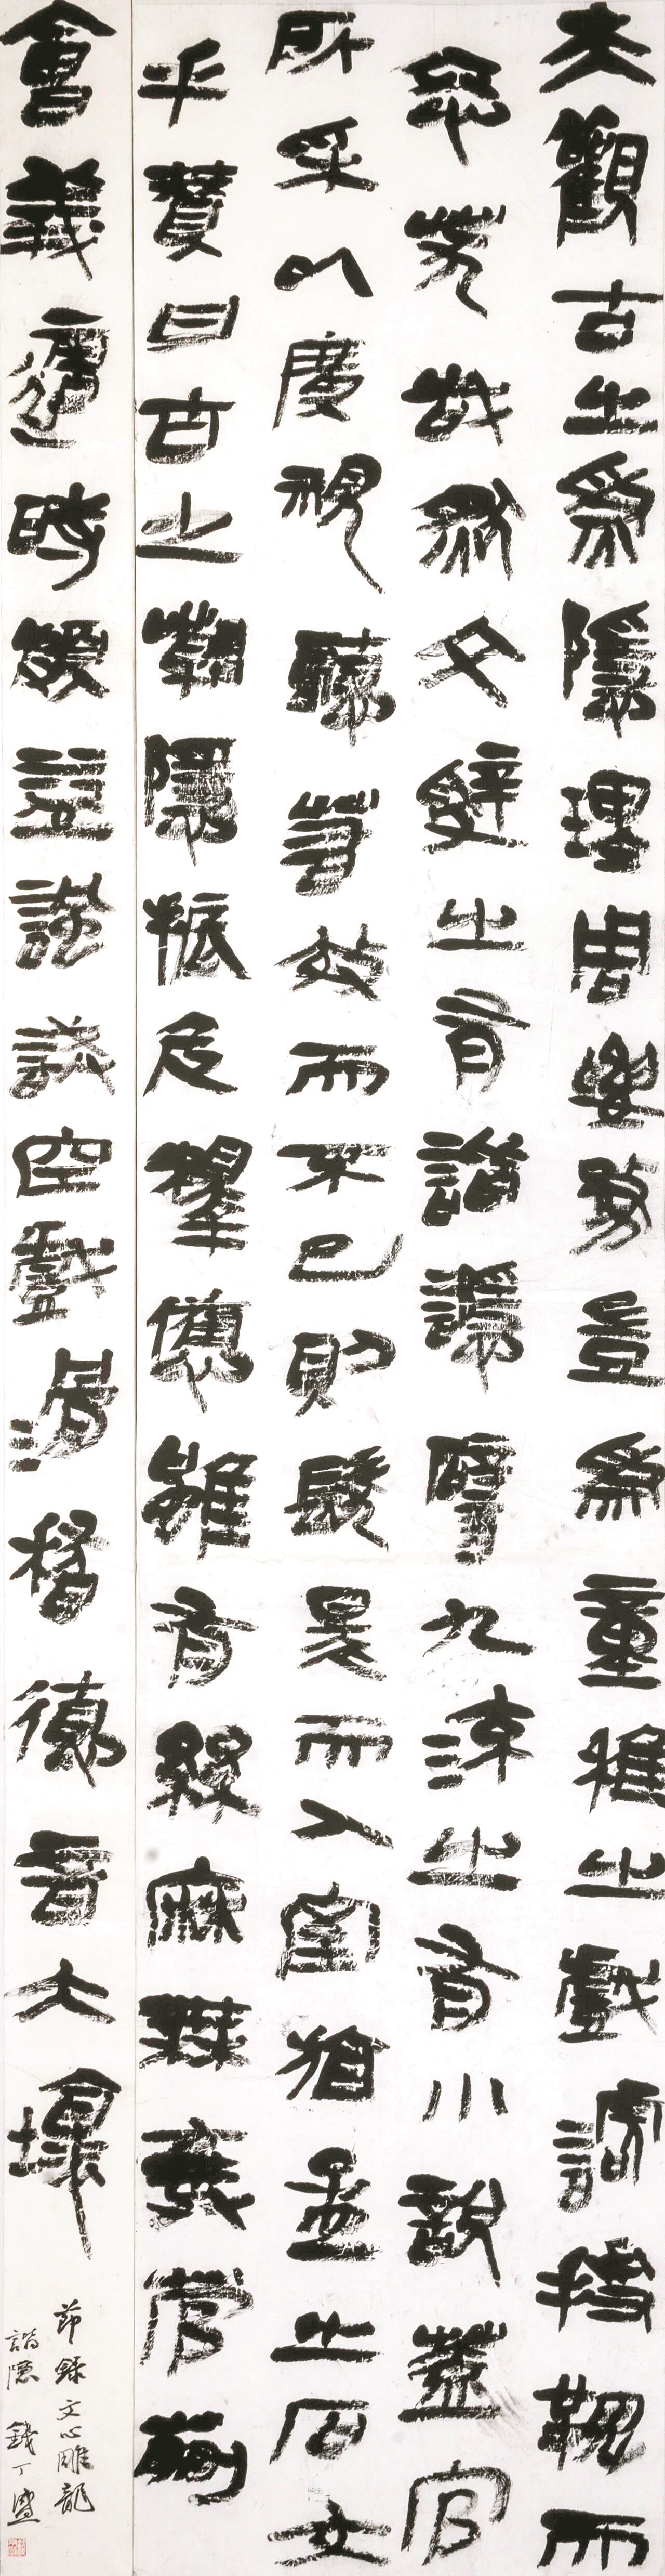 夫觀古之為隱理周要務豈為童稚之戲謔搏而
笑哉然文辭之有諧讔譬九流之有小說蓋官
所采以廣視聽若效而不已則髡是而入室孟之石交
乎贊曰古之嘲隱振危釋憊雖有絲麻無棄菅蒯
會義適時頗益諷誡空戲滑稽德音大壞
節錄文心雕龍
諧隱 錢丁盛